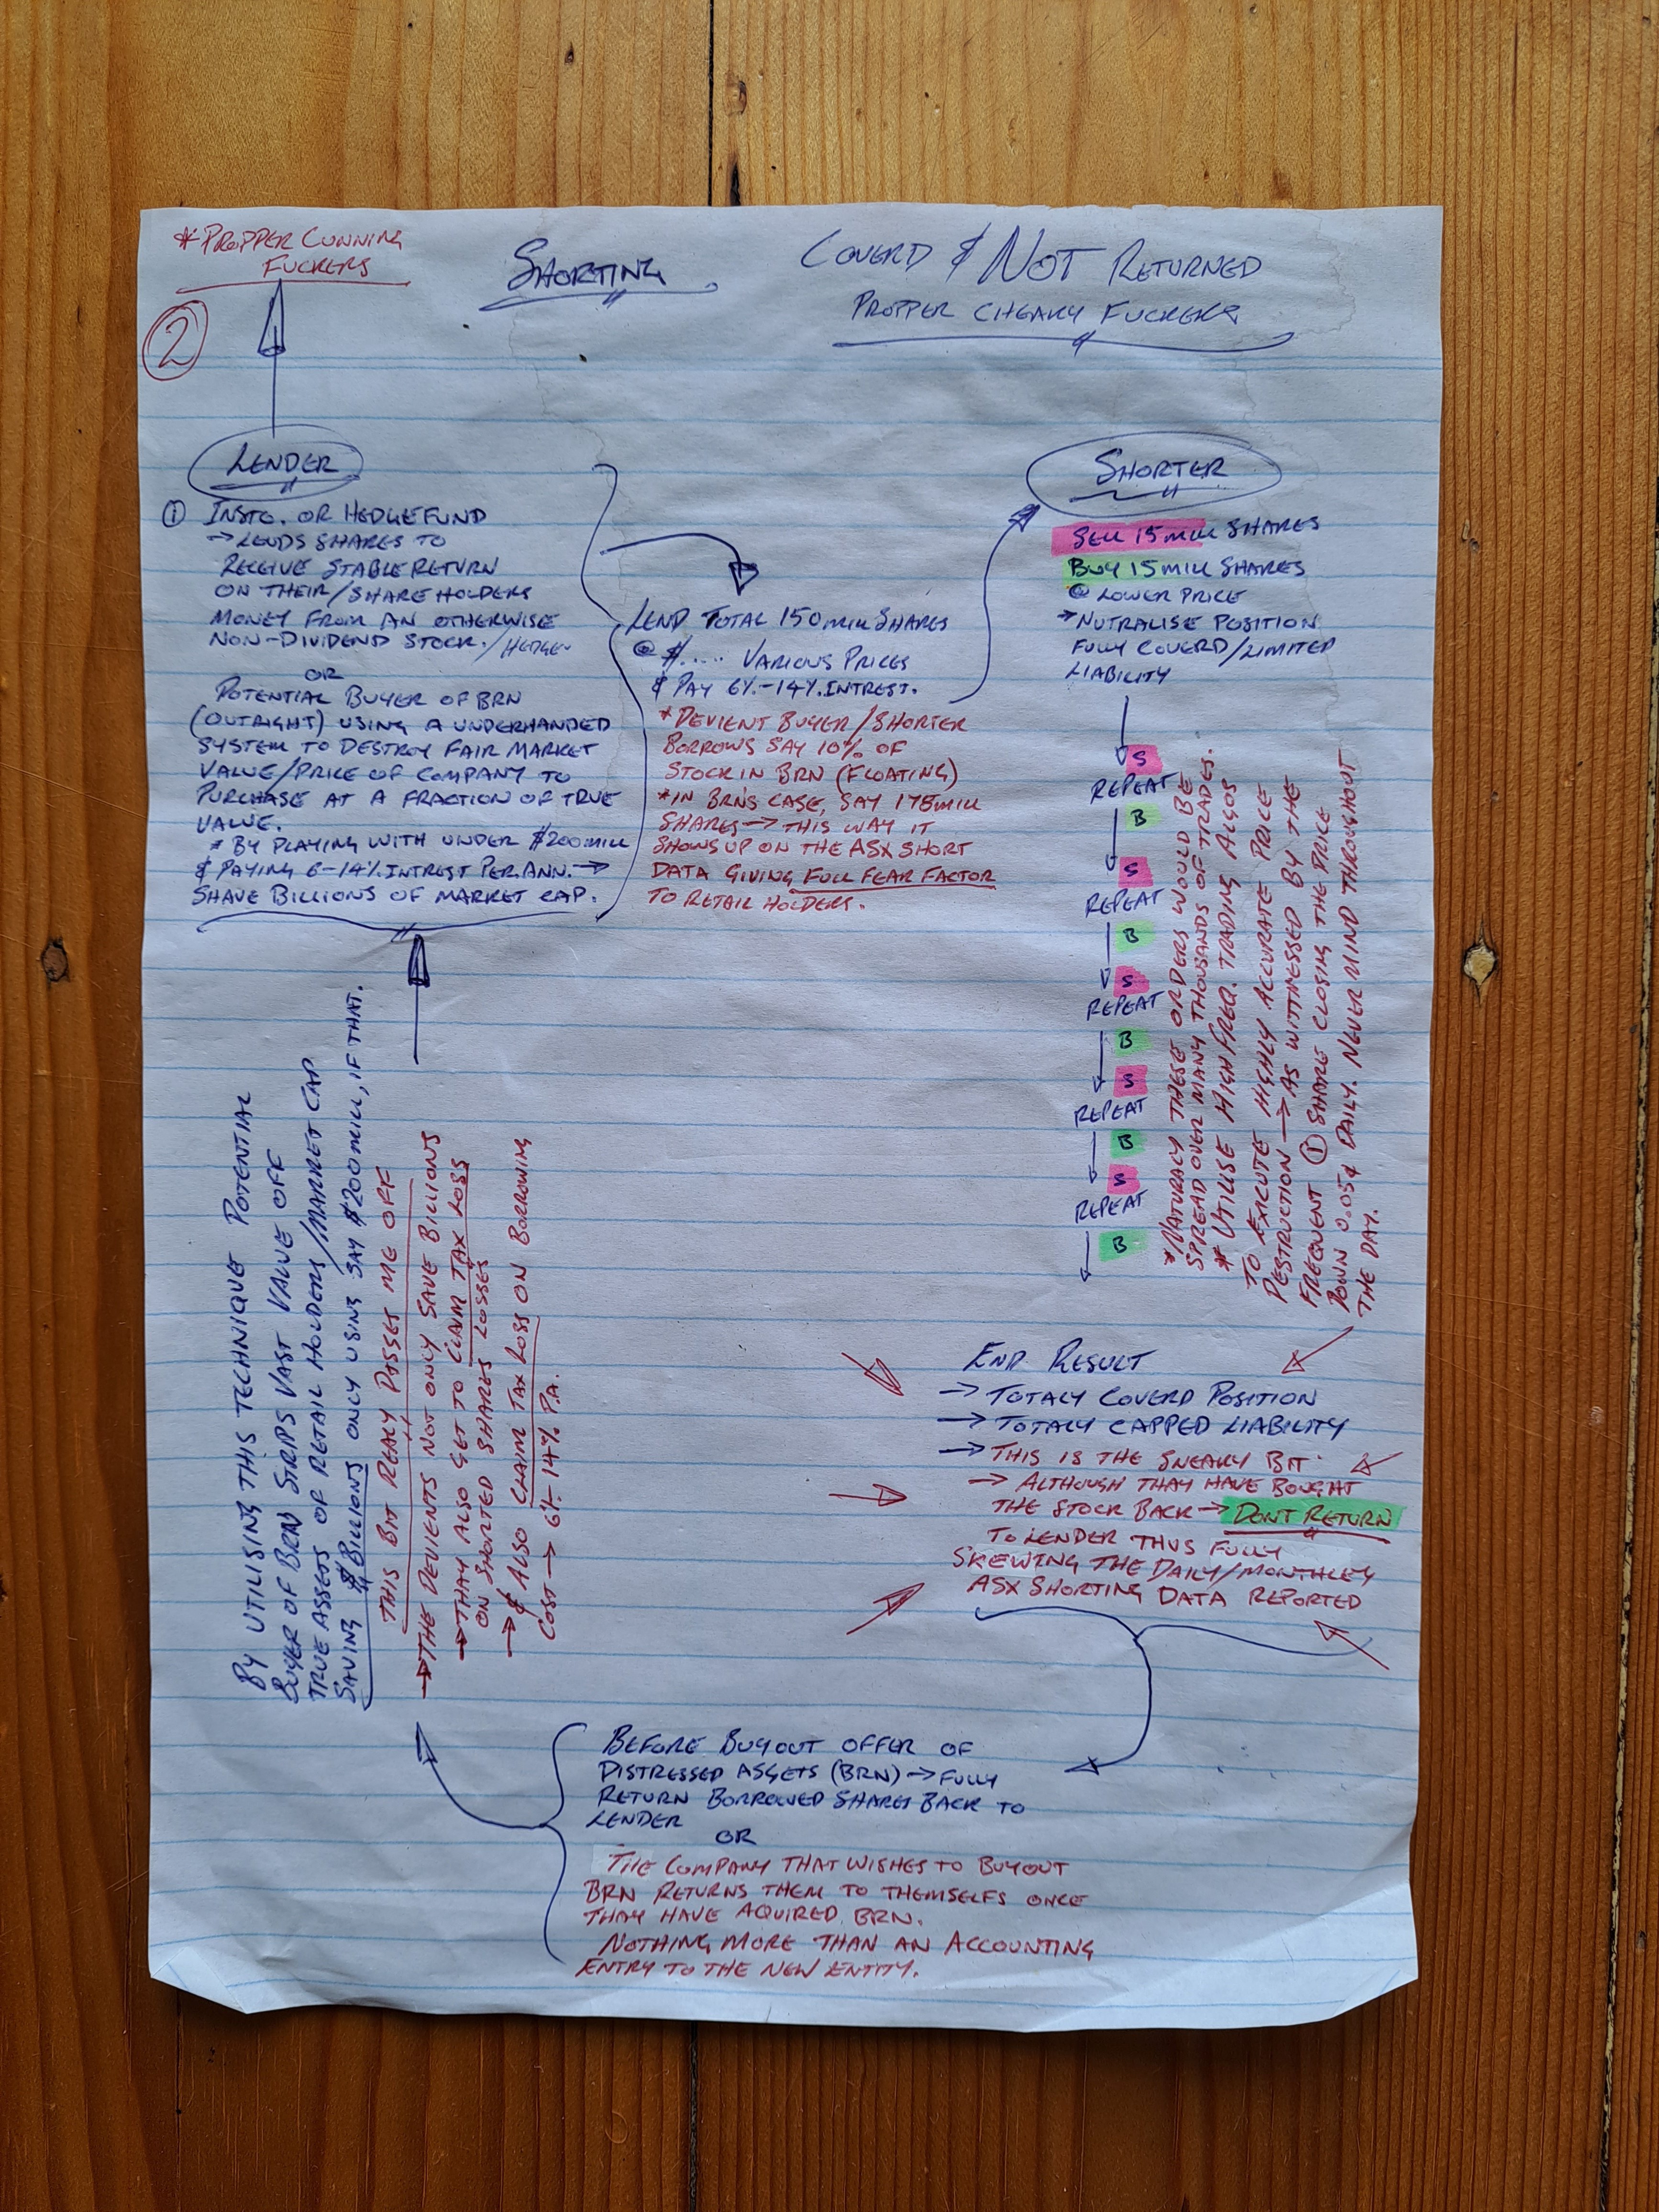 * PROPPER CUNNING
FUCKERS
SHORTING
COVERD & NOT RETURNED
PROPPER CHEAKY FUCKERS
2
LENDER
① INSTO. OR HEDGEFUND
→ LENDS SHARES TO
RECEIVE STABLE RETURN
ON THEIR/SHAREHOLDERS
MONEY FROM AN OTHERWISE
NON-DIVIDEND STOCK./HEDGE.
OR
POTENTIAL BUYER OF BRN
(OUTRIGHT) USING A UNDERHANDED
SYSTEM TO DESTROY FAIR MARKET
VALUE/PRICE OF COMPANY TO
PURCHASE AT A FRACTION OF TRUE
VALUE.
* BY PLAYING WITH UNDER $200MILL
& PAYING 6-14% INTREST PER.ANN. →
SHAVE BILLIONS OF MARKET CAP.
LEND TOTAL 150MILL SHARES
@ $..... VARIOUS PRICES
& PAY 6%-14% INTREST.
* DEVIENT BUYER/SHORTER
BORROWS SAY 10% OF
STOCK IN BRN (FLOATING)
* IN BRN'S CASE, SAY 175MILL
SHARES → THIS WAY IT
SHOWS UP ON THE ASX SHORT
DATA GIVING FULL FEAR FACTOR
TO RETAIL HOLDERS.
SHORTER
SELL 15MILL SHARES
BUY 15MILL SHARES
@ LOWER PRICE
→ NUTRALISE POSITION
FULLY COVERD/LIMITED
LIABILITY
S
REPEAT
B
S
REPEAT
B
S
REPEAT
B
S
REPEAT
B
S
REPEAT
B
* NATURALY THESE ORDERS WOULD BE
SPREAD OVER MANY THOUSANDS OF TRADES.
* UTILISE HIGH FREQ. TRADING ALGOS
TO EXECUTE HIGHLY ACCURATE PRICE
DESTRUCTION → AS WITTNESSED BY THE
FREQUENT ① SHARE CLOSING THE PRICE
DOWN 0.05¢ DAILY. NEVER MIND THROUGHOUT
THE DAY.
END RESULT
→ TOTALY COVERD POSITION
→ TOTALY CAPPED LIABILITY
→ THIS IS THE SNEAKY BIT.
→ ALTHOUGH THAY HAVE BOUGHT
THE STOCK BACK → DONT RETURN
TO LENDER THUS FULLY
SKEWING THE DAILY/MONTHLEY
ASX SHORTING DATA REPORTED
BEFORE BUYOUT OFFER OF
DISTRESSED ASSETS (BRN) → FULLY
RETURN BORROWED SHARES BACK TO
LENDER
OR
THE COMPANY THAT WISHES TO BUYOUT
BRN RETURNS THEM TO THEMSELFS ONCE
THAY HAVE AQUIRED BRN.
NOTHING MORE THAN AN ACCOUNTING
ENTRY TO THE NEW ENTITY.
BY UTILISING THIS TECHNIQUE POTENTIAL
BUYER OF BRN STRIPS VAST VALUE OFF
TRUE ASSETS OF RETAIL HOLDERS/MARKET CAP
SAVING $BILLIONS ONLY USING SAY $200MILL, IF THAT.
THIS BIT REALY PISSES ME OFF
→ THE DEVIENTS NOT ONLY SAVE BILLIONS
→ THAY ALSO GET TO CLAIM TAX LOSS
ON SHORTED SHARES LOSSES
→ & ALSO CLAIM TAX LOSS ON BORROWING
COST → 6%-14% P.A.